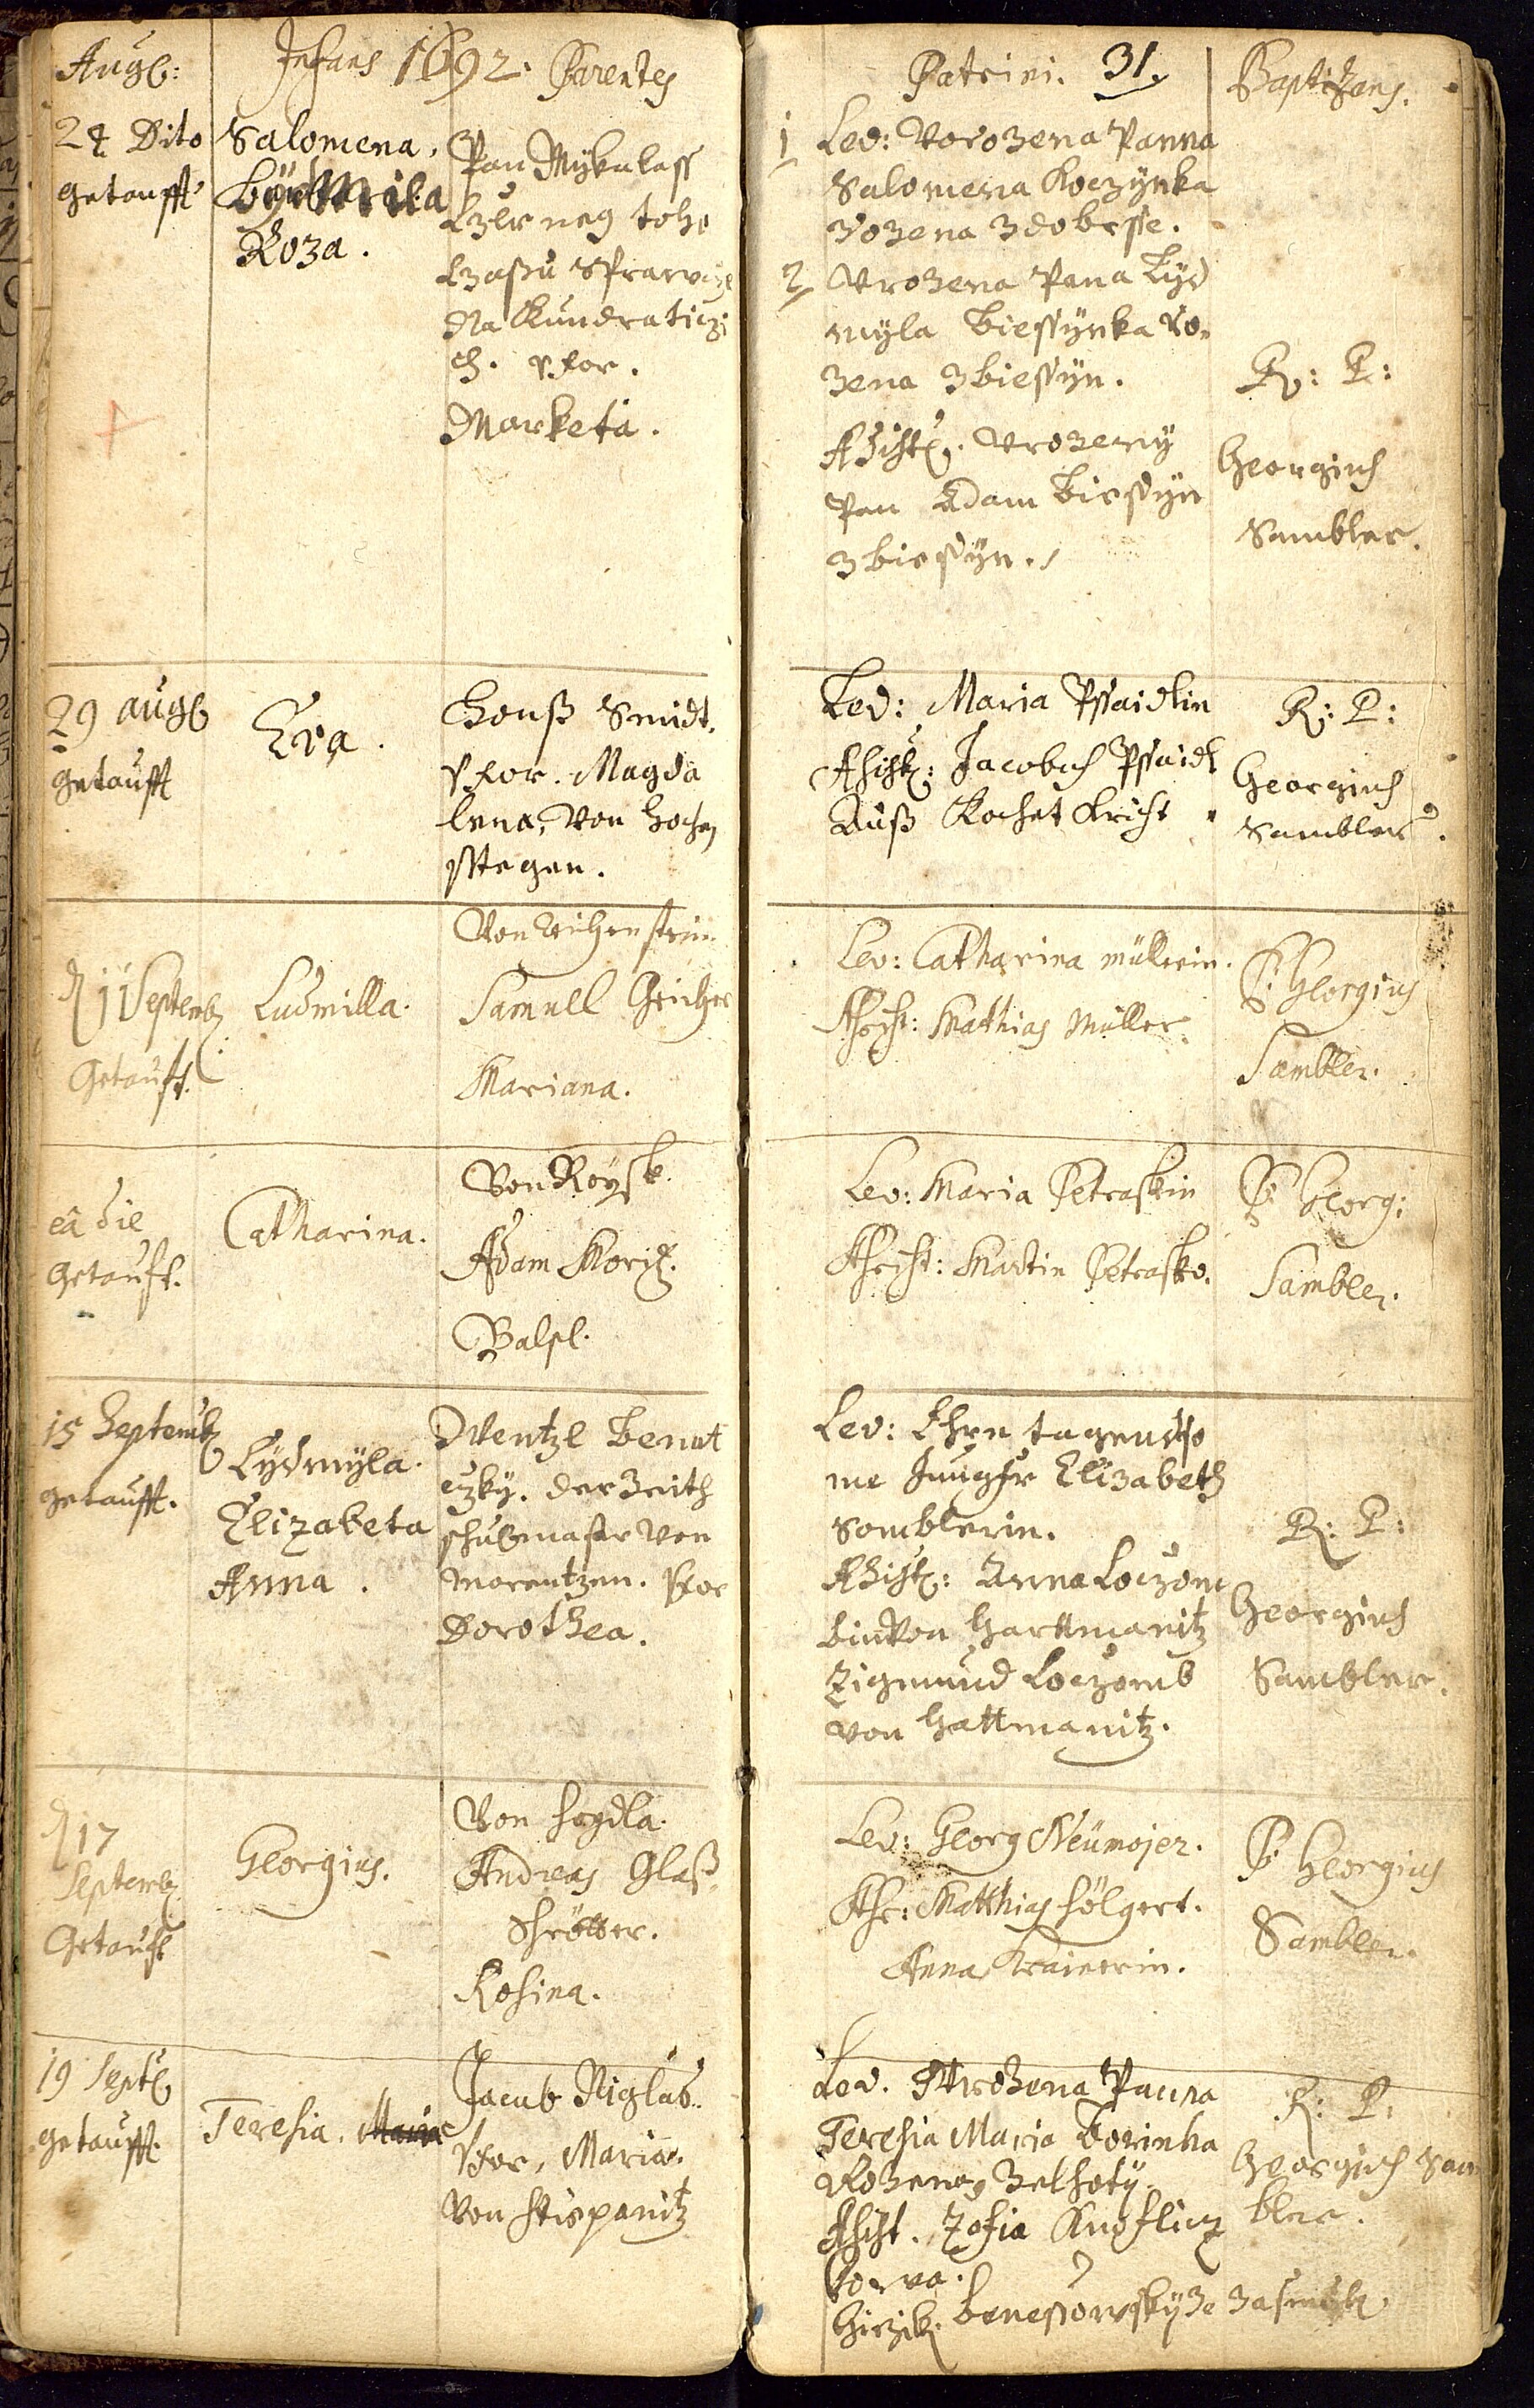 Augs:
Infans 1692. Parentes
Patrini. 31.
Baptizans.
24 Dito
getaufft
Salomena,
Mila
Roza.
Pan Mykulass
neg toho
Czassu
Na Kundraticzi
ch. Vxor.
Marketa.
1 Lev: Vrozena Panna
Salomena Koczynka
rozena z dobrsse.
2 Vrozena Pana Lyd
myla Biessynka Ro-
zena z biessyn.
Assist: Vrozeny
Pan Adam Biessyn
z biessyn.
R: P:
Georgius
Sambler.
29 Augs
getaufft
Eva.
Honß Smidt.
Vxor. Magda
lena, Von Hochen
Stegen.
Led: Maria Pssaidlin
Assist: Jacobus Pssaidl
Auß Kochet
R: P:
Georgius
Sambler.
d 11 Septemb
Getaufft.
Ludmilla.
Von Reichenstein
Samuel
Mariana.
Lev: Catharina Müllerin.
Assist: Mathias Müller.
P. Georgius
Sambler.
eâ die
Getaufft.
Catharina.
Von Roysk.
Adam Moriz.
Lev: Maria Petraskin
Assist: Martin Petrasko.
P. Georg:
Sambler.
15 Septemb
getaufft.
Lydmyla.
Elizabeta
Anna.
Wentzl Benat
czky. der Zeith
von
Morentzen. Vxor
Dorothea.
Lev: Ehrn tugendtso
me Jungfr Elizabeth
Somblerin.
Assist: Anna Loczom
bin von Harttmanitz
Zigmund Loczomb
von Hattmanitz.
R: P:
Georgius
Sambler.
d 17
Septemb
Getaufft
Georgius.
Von
Andreas Glaß
Schrötter.
Rosina.
Lev: Georg Neümajer.
Ass: Matthias Hölgert.
Anna Krainerin.
P. Georgius
Sambler.
19 Septb
getaufft.
Teresia. Maria
Jacub Niglas.
Vxor, Maria.
Von Stiepanitz
Lev. Vrozena Panna
Teresia Maria Borinka
Rozena z Lhoty.
Assist. Zofia Knoflicz
kowa.
Girzik Benessowsky ze Zasmuk
R: P.
Georgius Sam
bler.